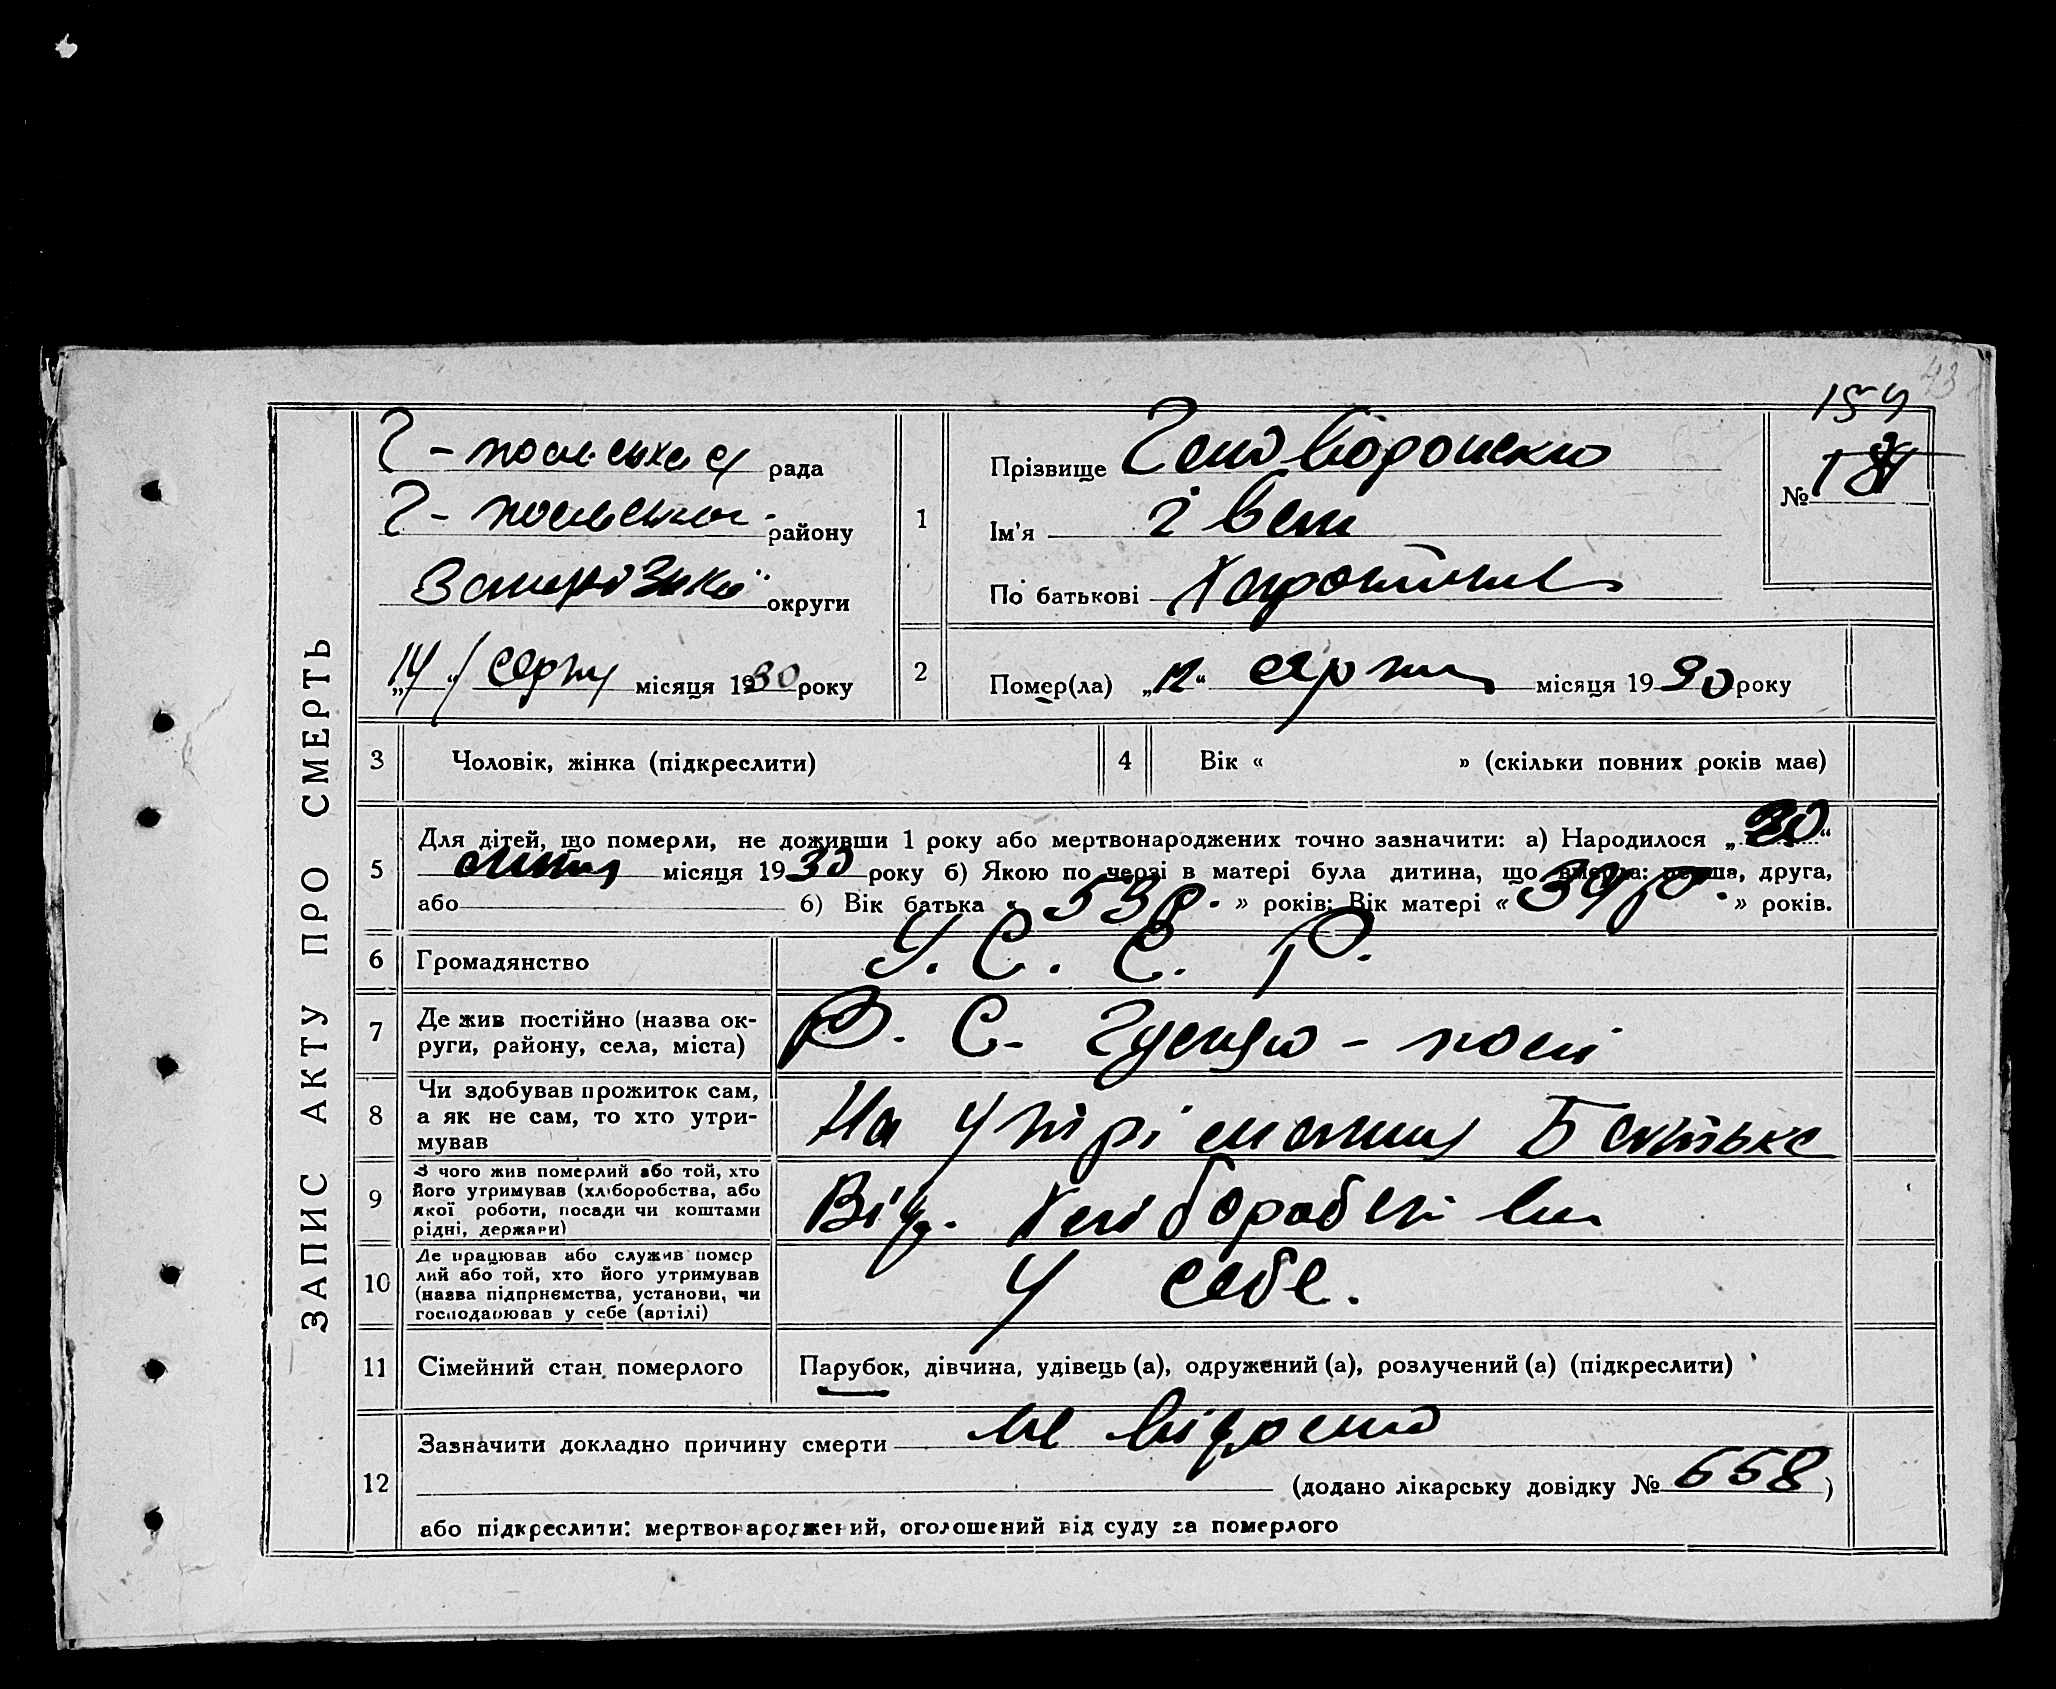 43
154
ЗАПИС АКТУ ПРО СМЕРТЬ
Г-польська рада
Г-польськог. району
Запорізької округи
„14“ серпня місяця 1930 року
1
Прізвище Головороненко
Ім'я Іван
По батькові Харитонів
№ 181
2
Помер(ла) „12“ серпня місяця 1930 року
3 Чоловік, жінка (підкреслити)
4 Вік « » (скільки повних років має)
5 Для дітей, що померли, не доживши 1 року або мертвонароджених точно зазначити: а) Народилося „30“
липня місяця 1930 року б) Якою по черзі в матері була дитина, що вмерла: перша, друга,
або б) Вік батька « 53 р. » років; Вік матері « 39 р. » років.
6 Громадянство У. С. С. Р.
7 Де жив постійно (назва ок-
руги, району, села, міста) с. Гуляй-поли
8 Чи здобував прожиток сам,
а як не сам, то хто утри-
мував На утріманні Батька
9 З чого жив померлий або той, хто
його утримував (хліборобства, або
якої роботи, посади чи коштами
рідні, держави) Від. Хліборобства
10 Де працював або служив помер
лий або той, хто його утримував
(назва підпрнємства, установи, чи
господарював у себе (артілі) У себе.
11 Сімейний стан померлого Парубок, дівчина, удівець (а), одружений (а), розлучений (а) (підкреслити)
12 Зазначити докладно причину смерти не відомо
(додано лікарську довідку № 658)
або підкреслити: мертвонароджений, оголошений від суду за померлого